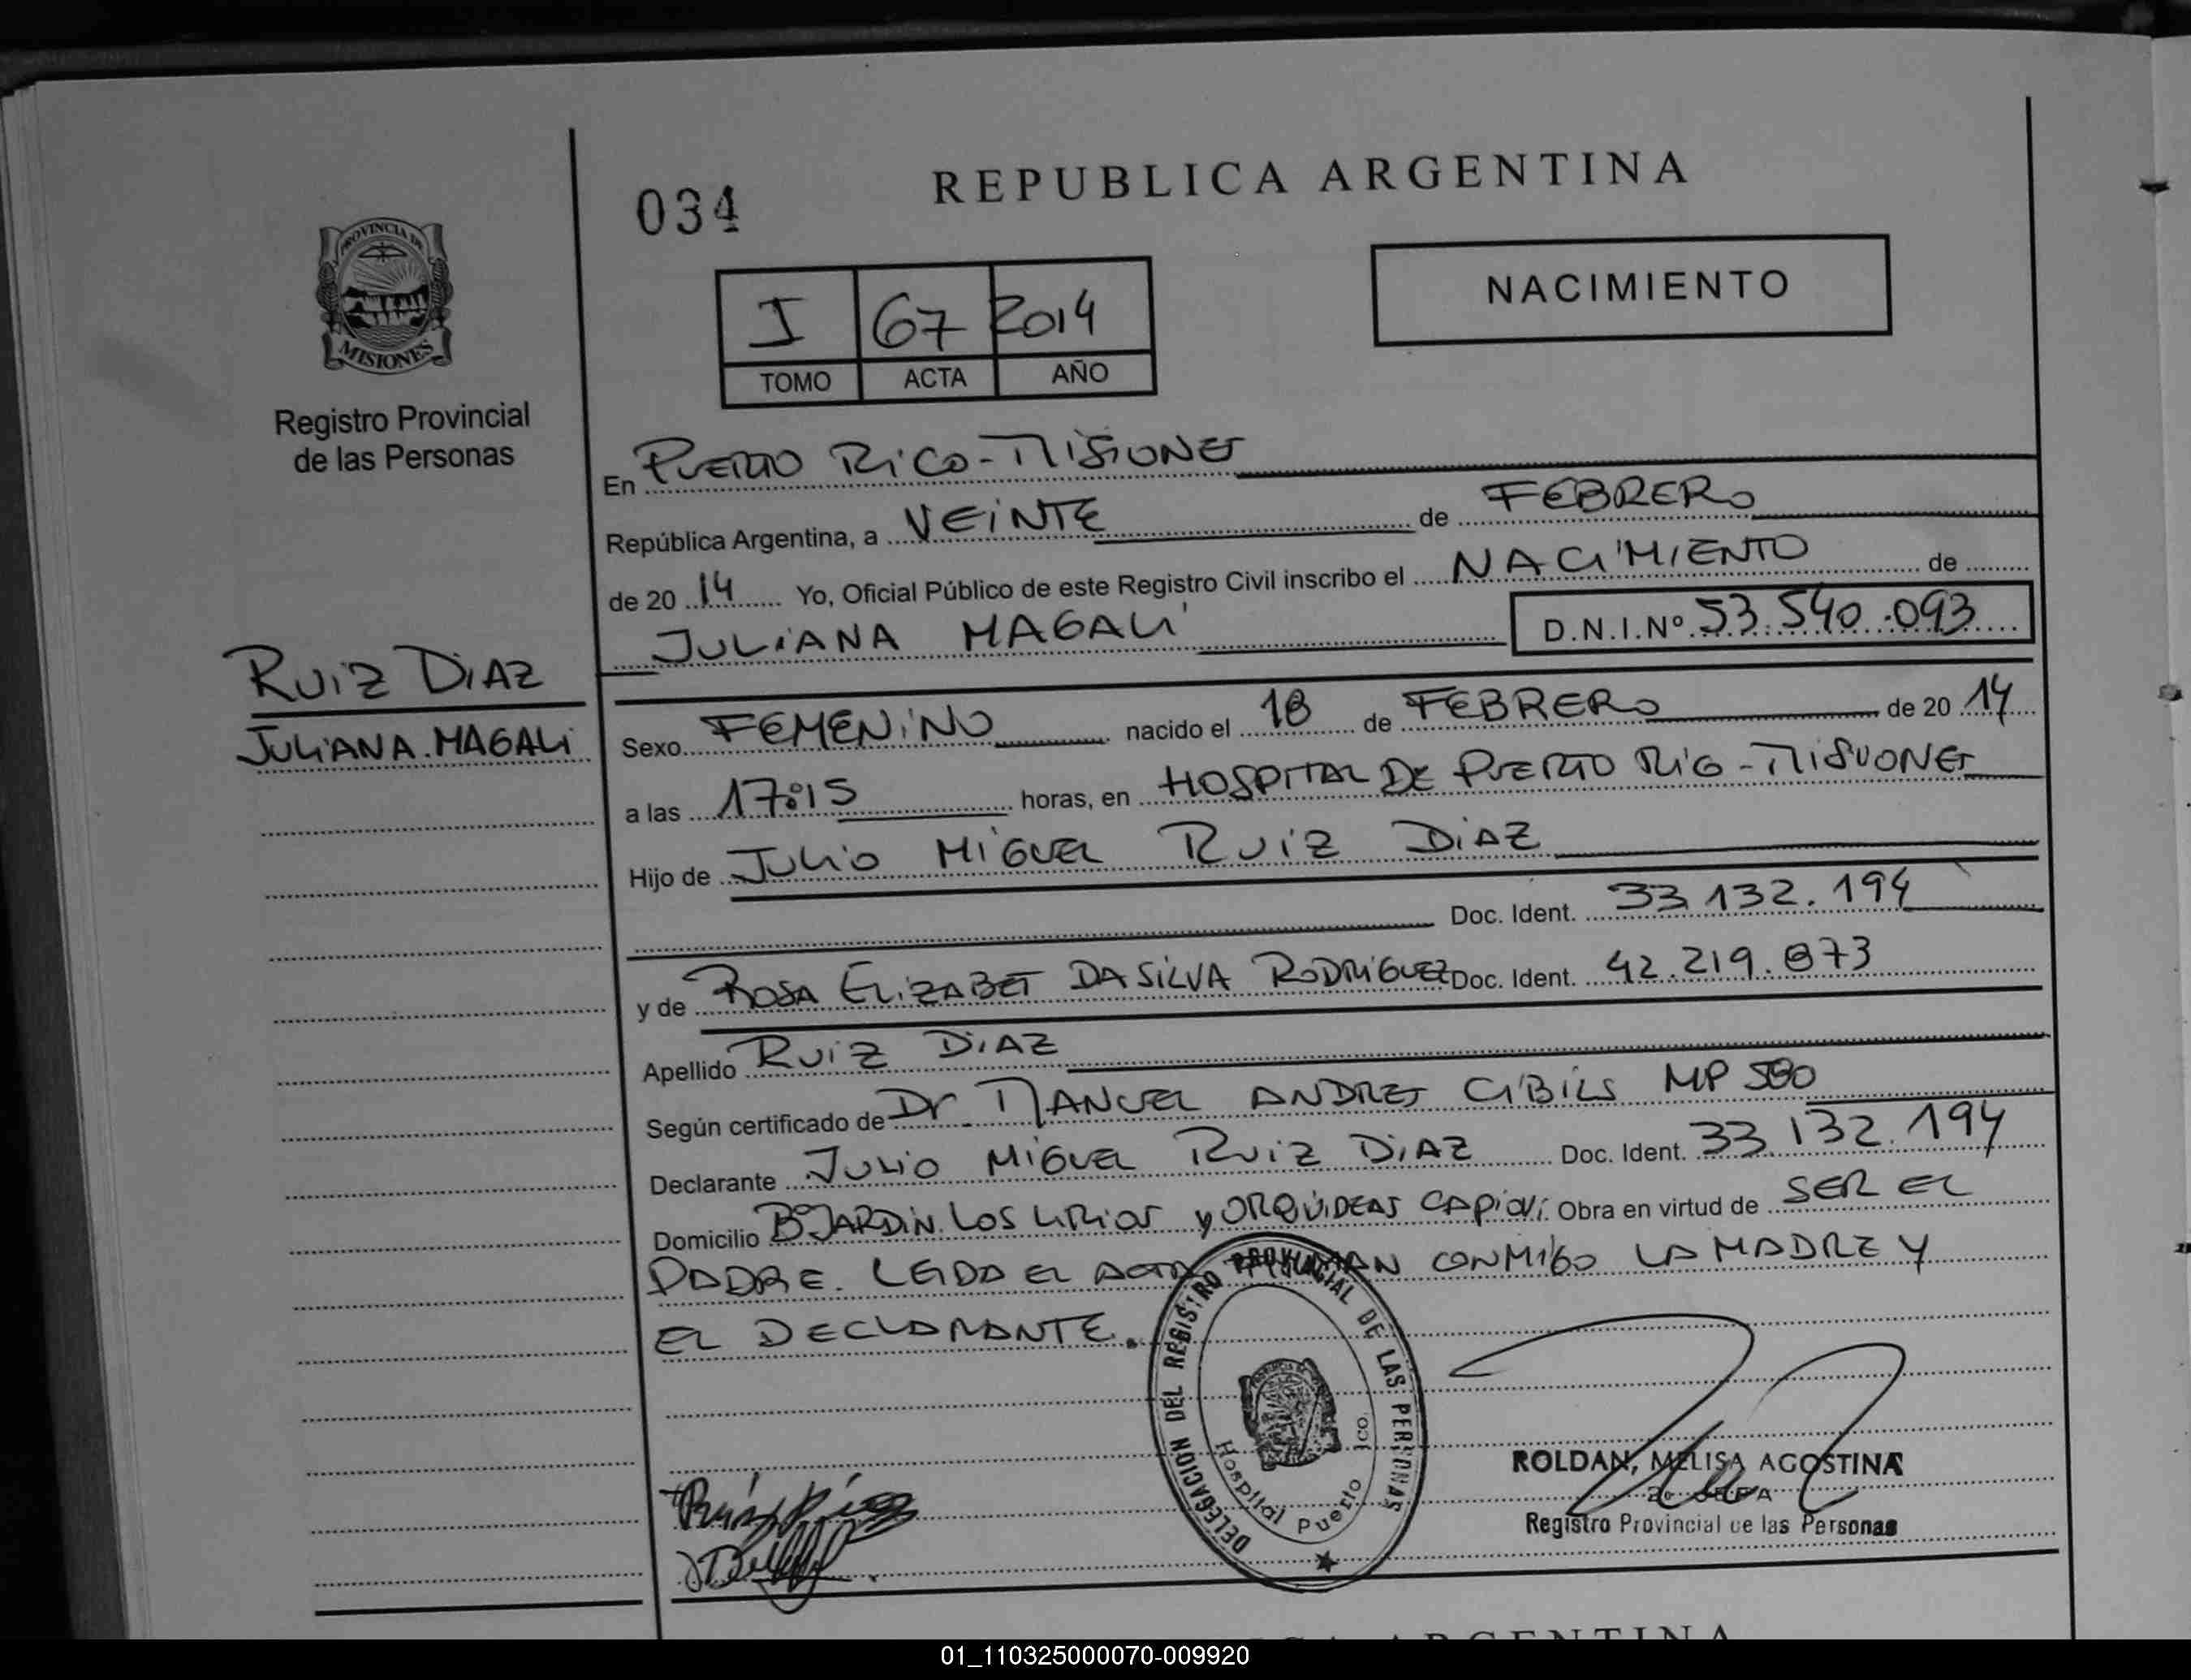 034
REPUBLICA ARGENTINA
PROVINCIA DE
MISIONES
Registro Provincial
de las Personas
I 67 2014
TOMO ACTA AÑO
NACIMIENTO
En PUERTO RICO - MISIONES
República Argentina, a VEINTE de FEBRERO
de 20 14 Yo, Oficial Público de este Registro Civil inscribo el NACIMIENTO de
JULIANA MAGALI D.N.I.Nº 53.540.093
RUIZ DIAZ
JULIANA.MAGALI
Sexo FEMENINO nacido el 18 de FEBRERO de 20 14
a las 17:15 horas, en HOSPITAL DE PUERTO RICO - MISIONES
Hijo de JULIO MIGUEL RUIZ DIAZ
Doc. Ident. 33.132.194
y de ROSA ELIZABET DA SILVA RODRIGUEZ Doc. Ident. 42.219.873
Apellido RUIZ DIAZ
Según certificado de Dr MANUEL ANDRES CIBILS MP 580
Declarante JULIO MIGUEL RUIZ DIAZ Doc. Ident. 33.132.194
Domicilio Bº JARDIN. LOS LIRIOS y ORQUIDEAS CAPIOVI Obra en virtud de SER EL
PADRE. LEIDA EL ACTA CONMIGO LA MADRE Y
EL DECLARANTE.
DELEGACION DEL REGISTRO PROVINCIAL DE LAS PERSONAS
Hospital Puerto
ROLDAN, MELISA AGOSTINA
Registro Provincial de las Personas
01_110325000070-009920